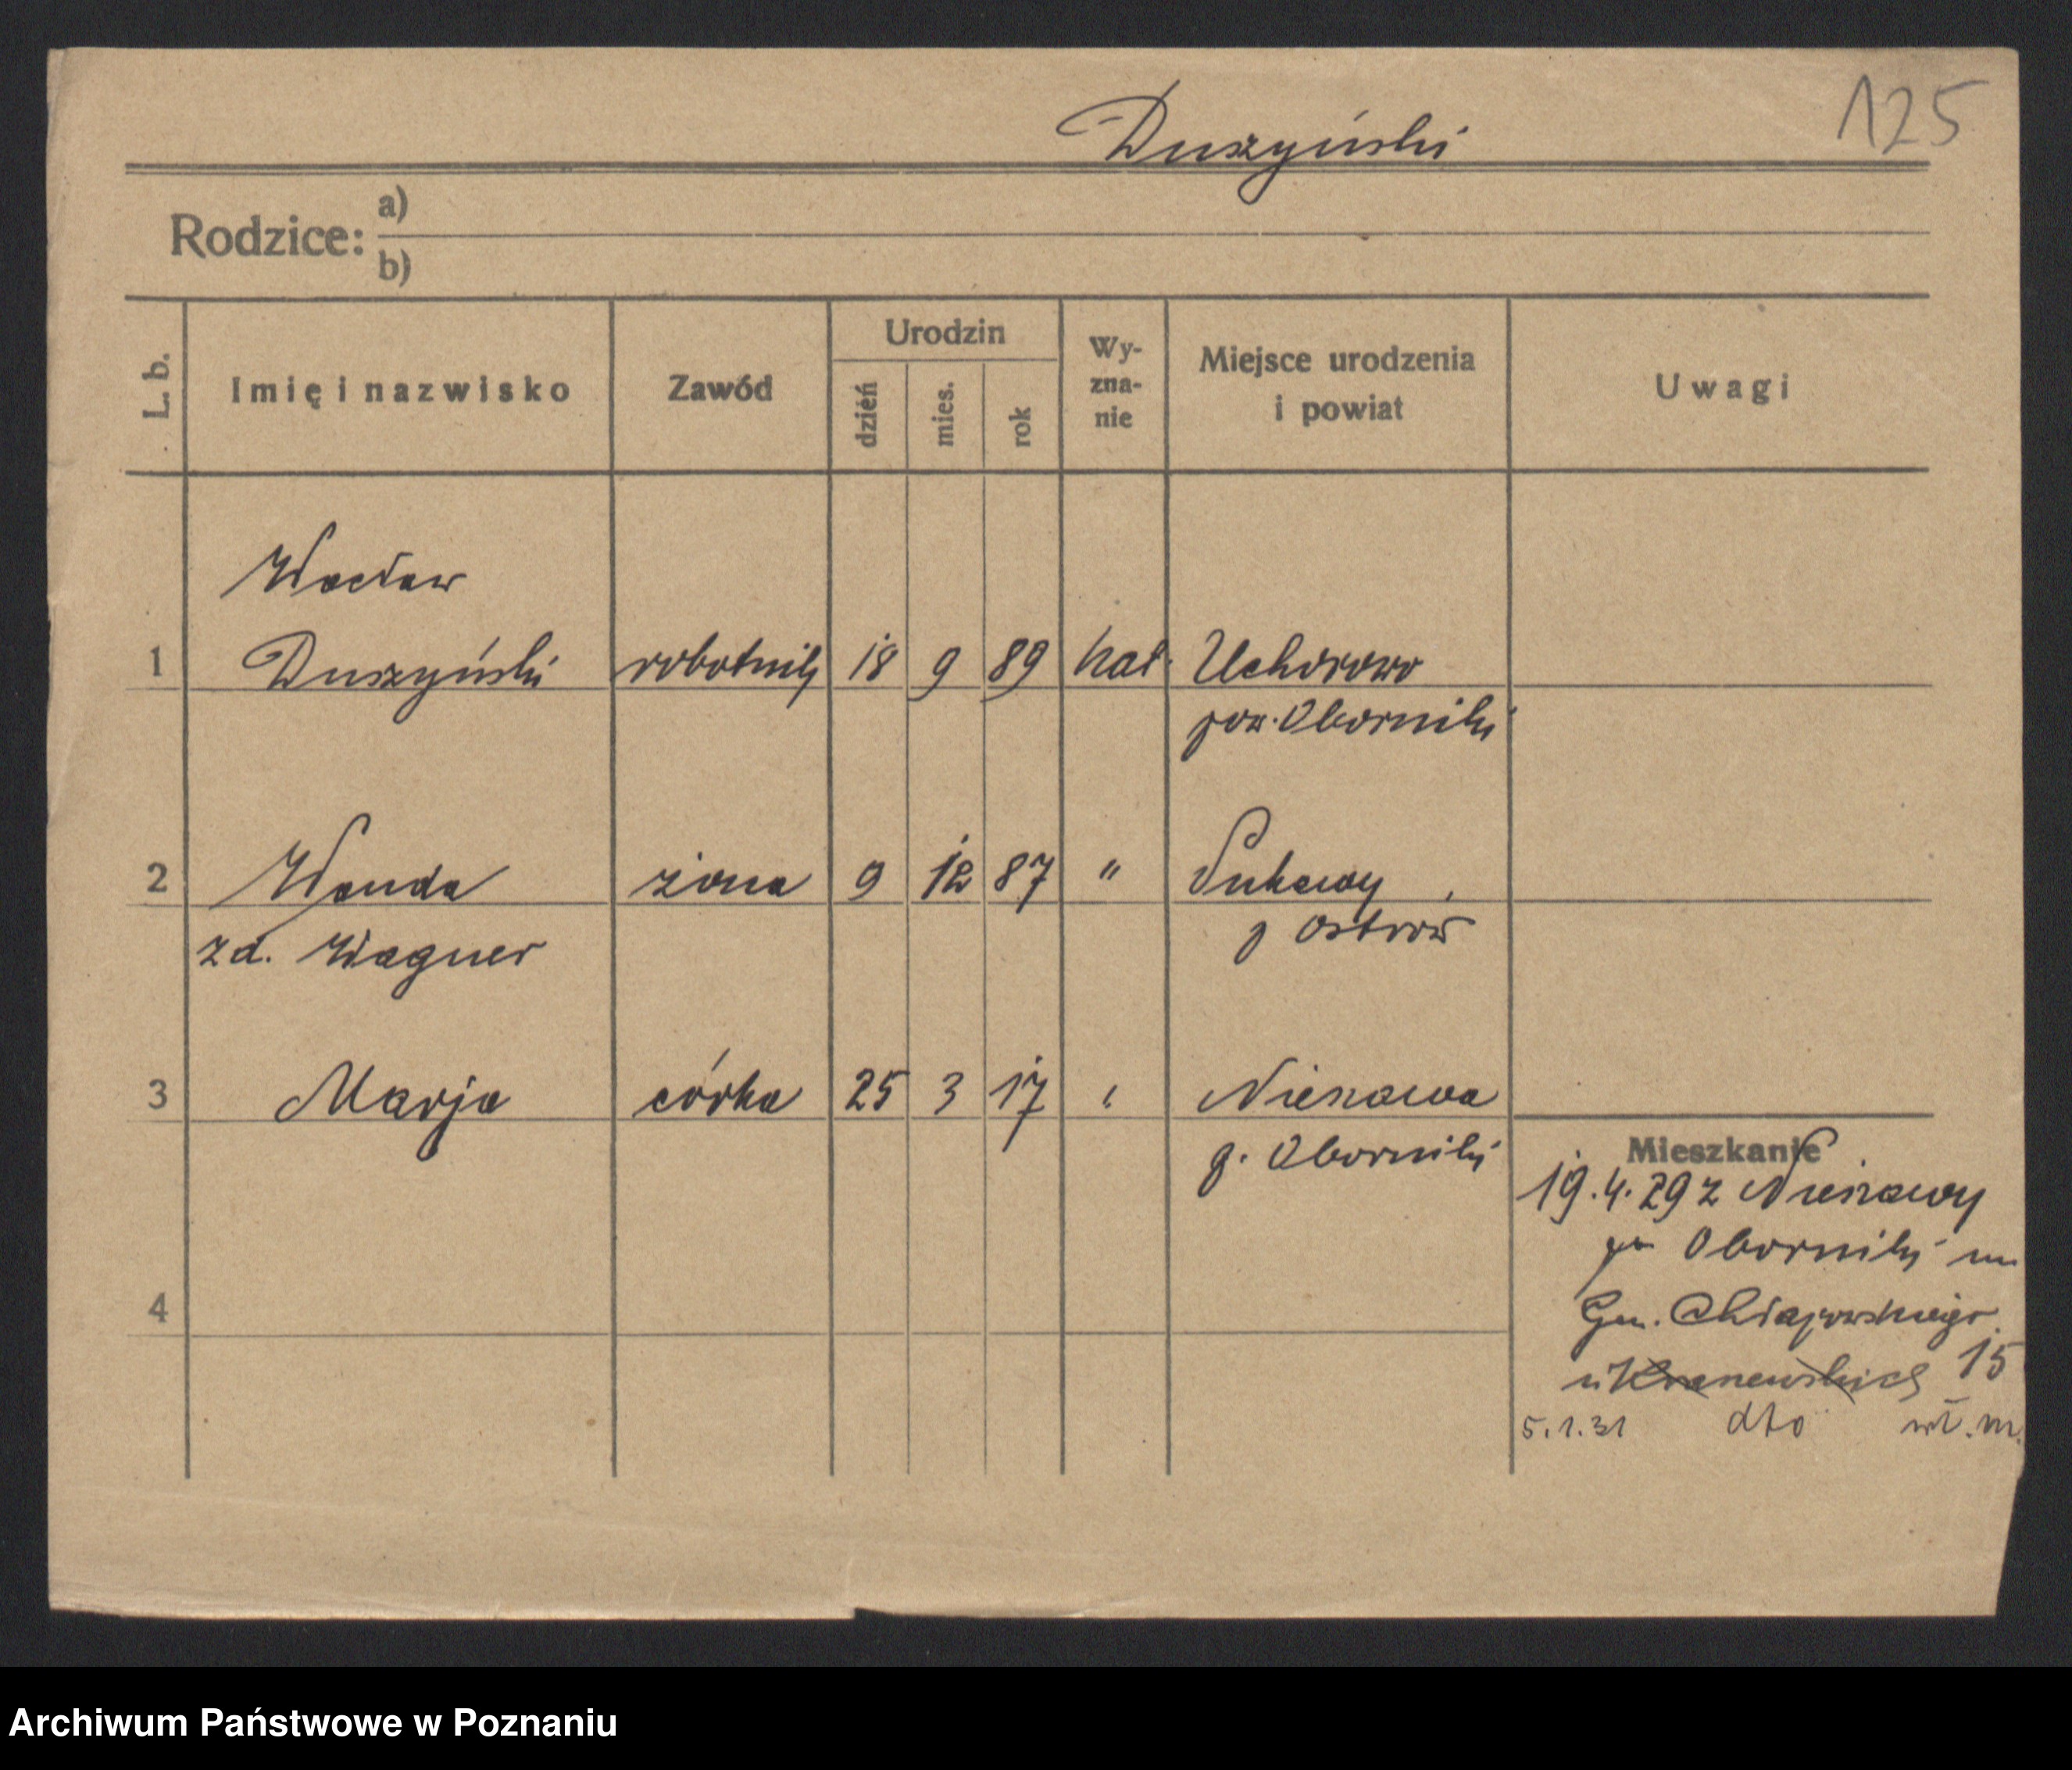 125
Duszyński
Rodzice: a)
b)
L. b. Imię i nazwisko Zawód Urodzin dzień mies. rok Wy-zna-nie Miejsce urodzenia i powiat Uwagi
Wacław
1 Duszyński robotnik 18 9 89 kat. Uchorowo
pow. Oborniki
2 Wanda żona 9 12 87 " 
zd. Wagner p Ostrów
3 Marja córka 25 3 17 " Nieszawa
p. Oborniki
Mieszkanie
19.4.29 z Nieszawy
pow Oborniki na
Gen. Chłapowskiego
15
5.1.31 dto wł. m.
4
Archiwum Państwowe w Poznaniu